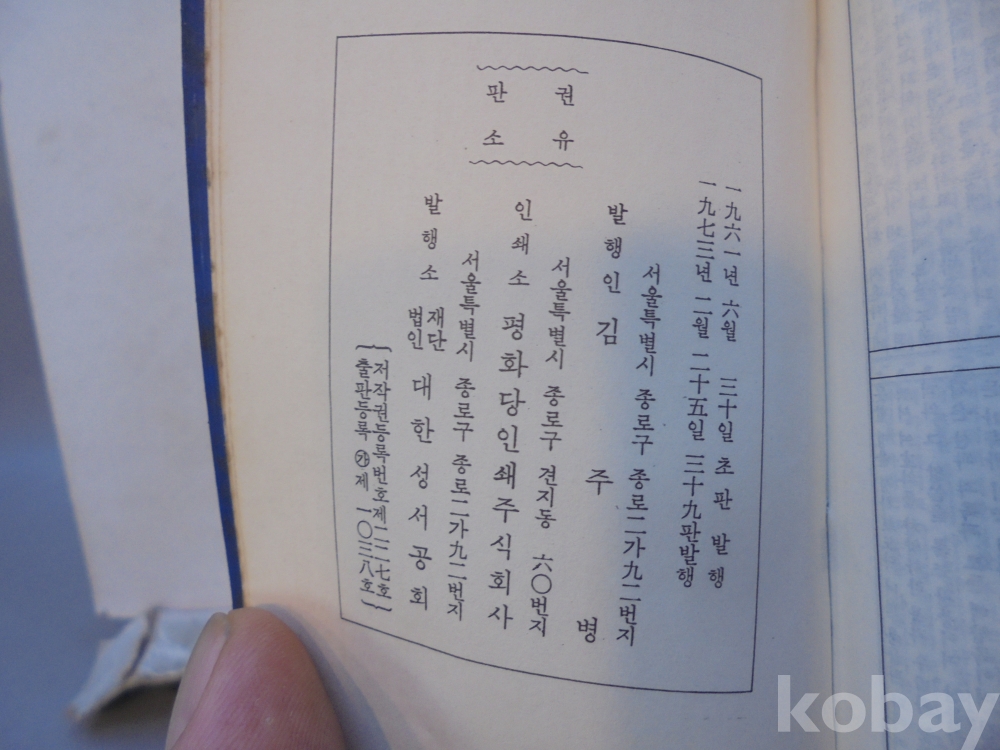 一九六一년 六월 三十일 초판발행
一九七三년 二월 二十五일 三十九판발행
서울특별시 종로구 종로二가九二번지
발행인 김주병
서울특별시 종로구 견지동 六〇번지
인쇄소 평화당인쇄주식회사
서울특별시 종로구 종로二가九二번지
발행소 재단법인 대한성서공회
저작권등록번호제二二七호
출판등록 ㉮제 一〇三八호
판권
소유
kobay